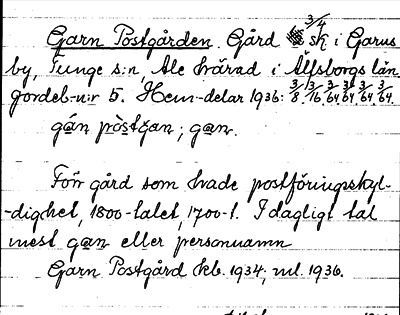 Garn Postgården. Gård 3/4 sk i Garns
by, Tunge s:n, Ale härad i Älfsborgs län
Jordeb.-n:r 5. Hem-delar 1936: 3/8, 3/16, 3/64, 3/64, 3/64, 3/64.
gán pòstgan; gan.
Förr gård som hade postföringsskyl-
-dighet, 1800-talet, 1700-t. I dagligt tal
mest gan eller personnamn
Garn Postgård kb. 1934, ml. 1936.